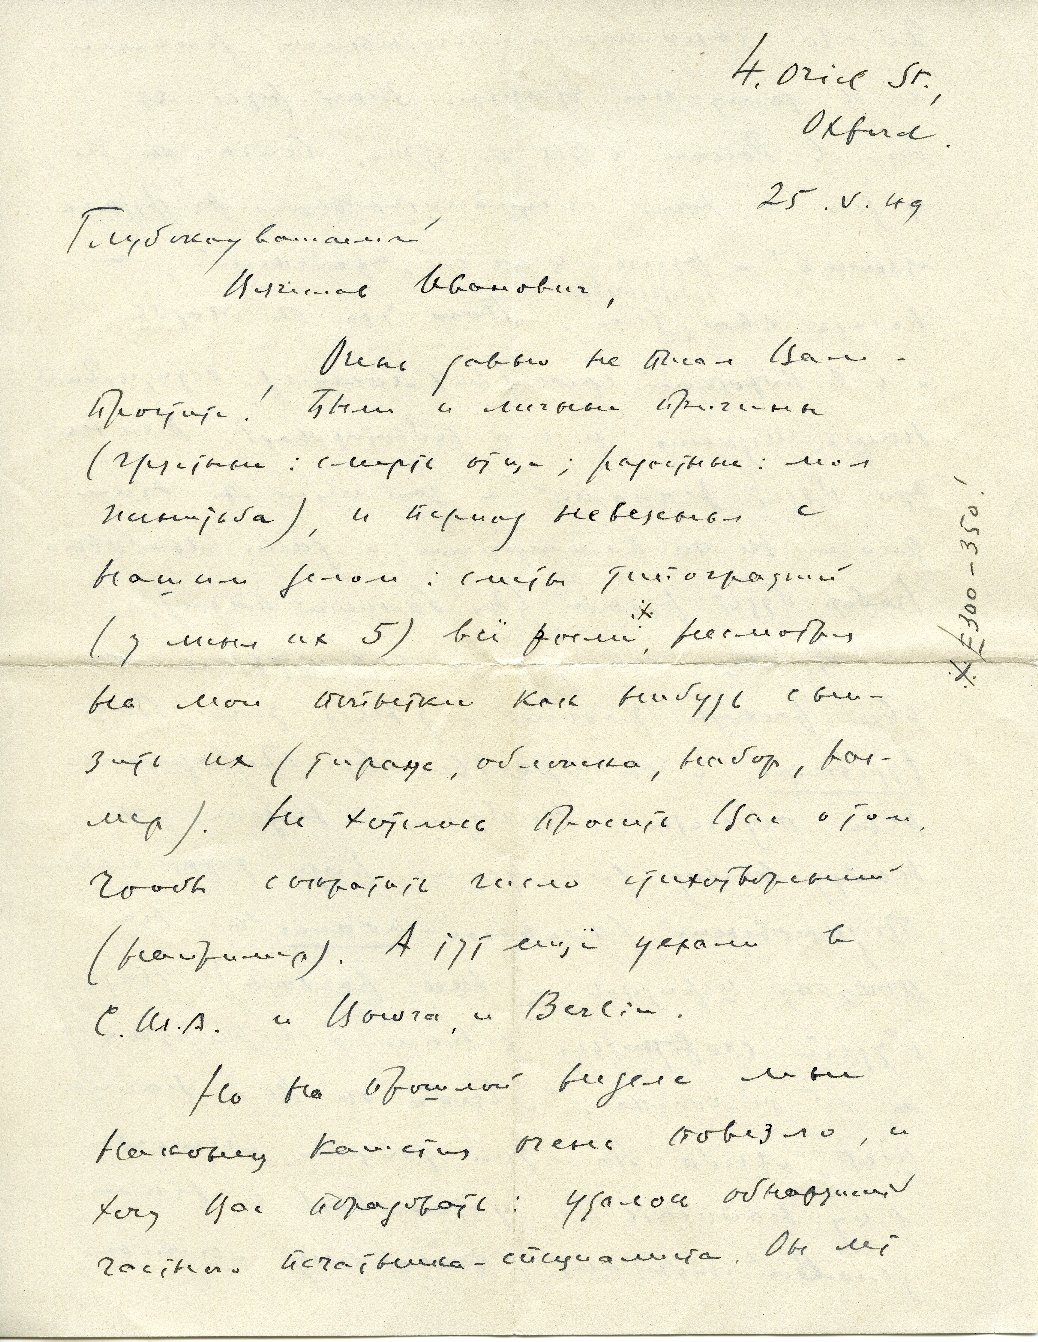 4. Oriel St.,
Oxford.
25.V.49
Глубокоуважаемый
Вячеслав Иванович,
Очень давно не писал Вам -
простите! Были и личные причины
(грустные: смерть отца; радостные: моя
женитьба), и период невезенья с
нашим делом: сметы типографий
(у меня их 5) всё росли ×, несмотря
на мои попытки как нибудь сни-
зить их (тираж, обложка, набор, раз-
мер). Не хотелось просить Вас о том,
чтобы сократить число стихотворений
(например). А тут ещё уехали в
С.Ш.А. и Боура, и Berlin.
Но на прошлой неделе мне
наконец кажется очень повезло, и
хочу Вас порадовать: удалось обнаружить
частного печатника-специалиста. Он лет
× £300-350!